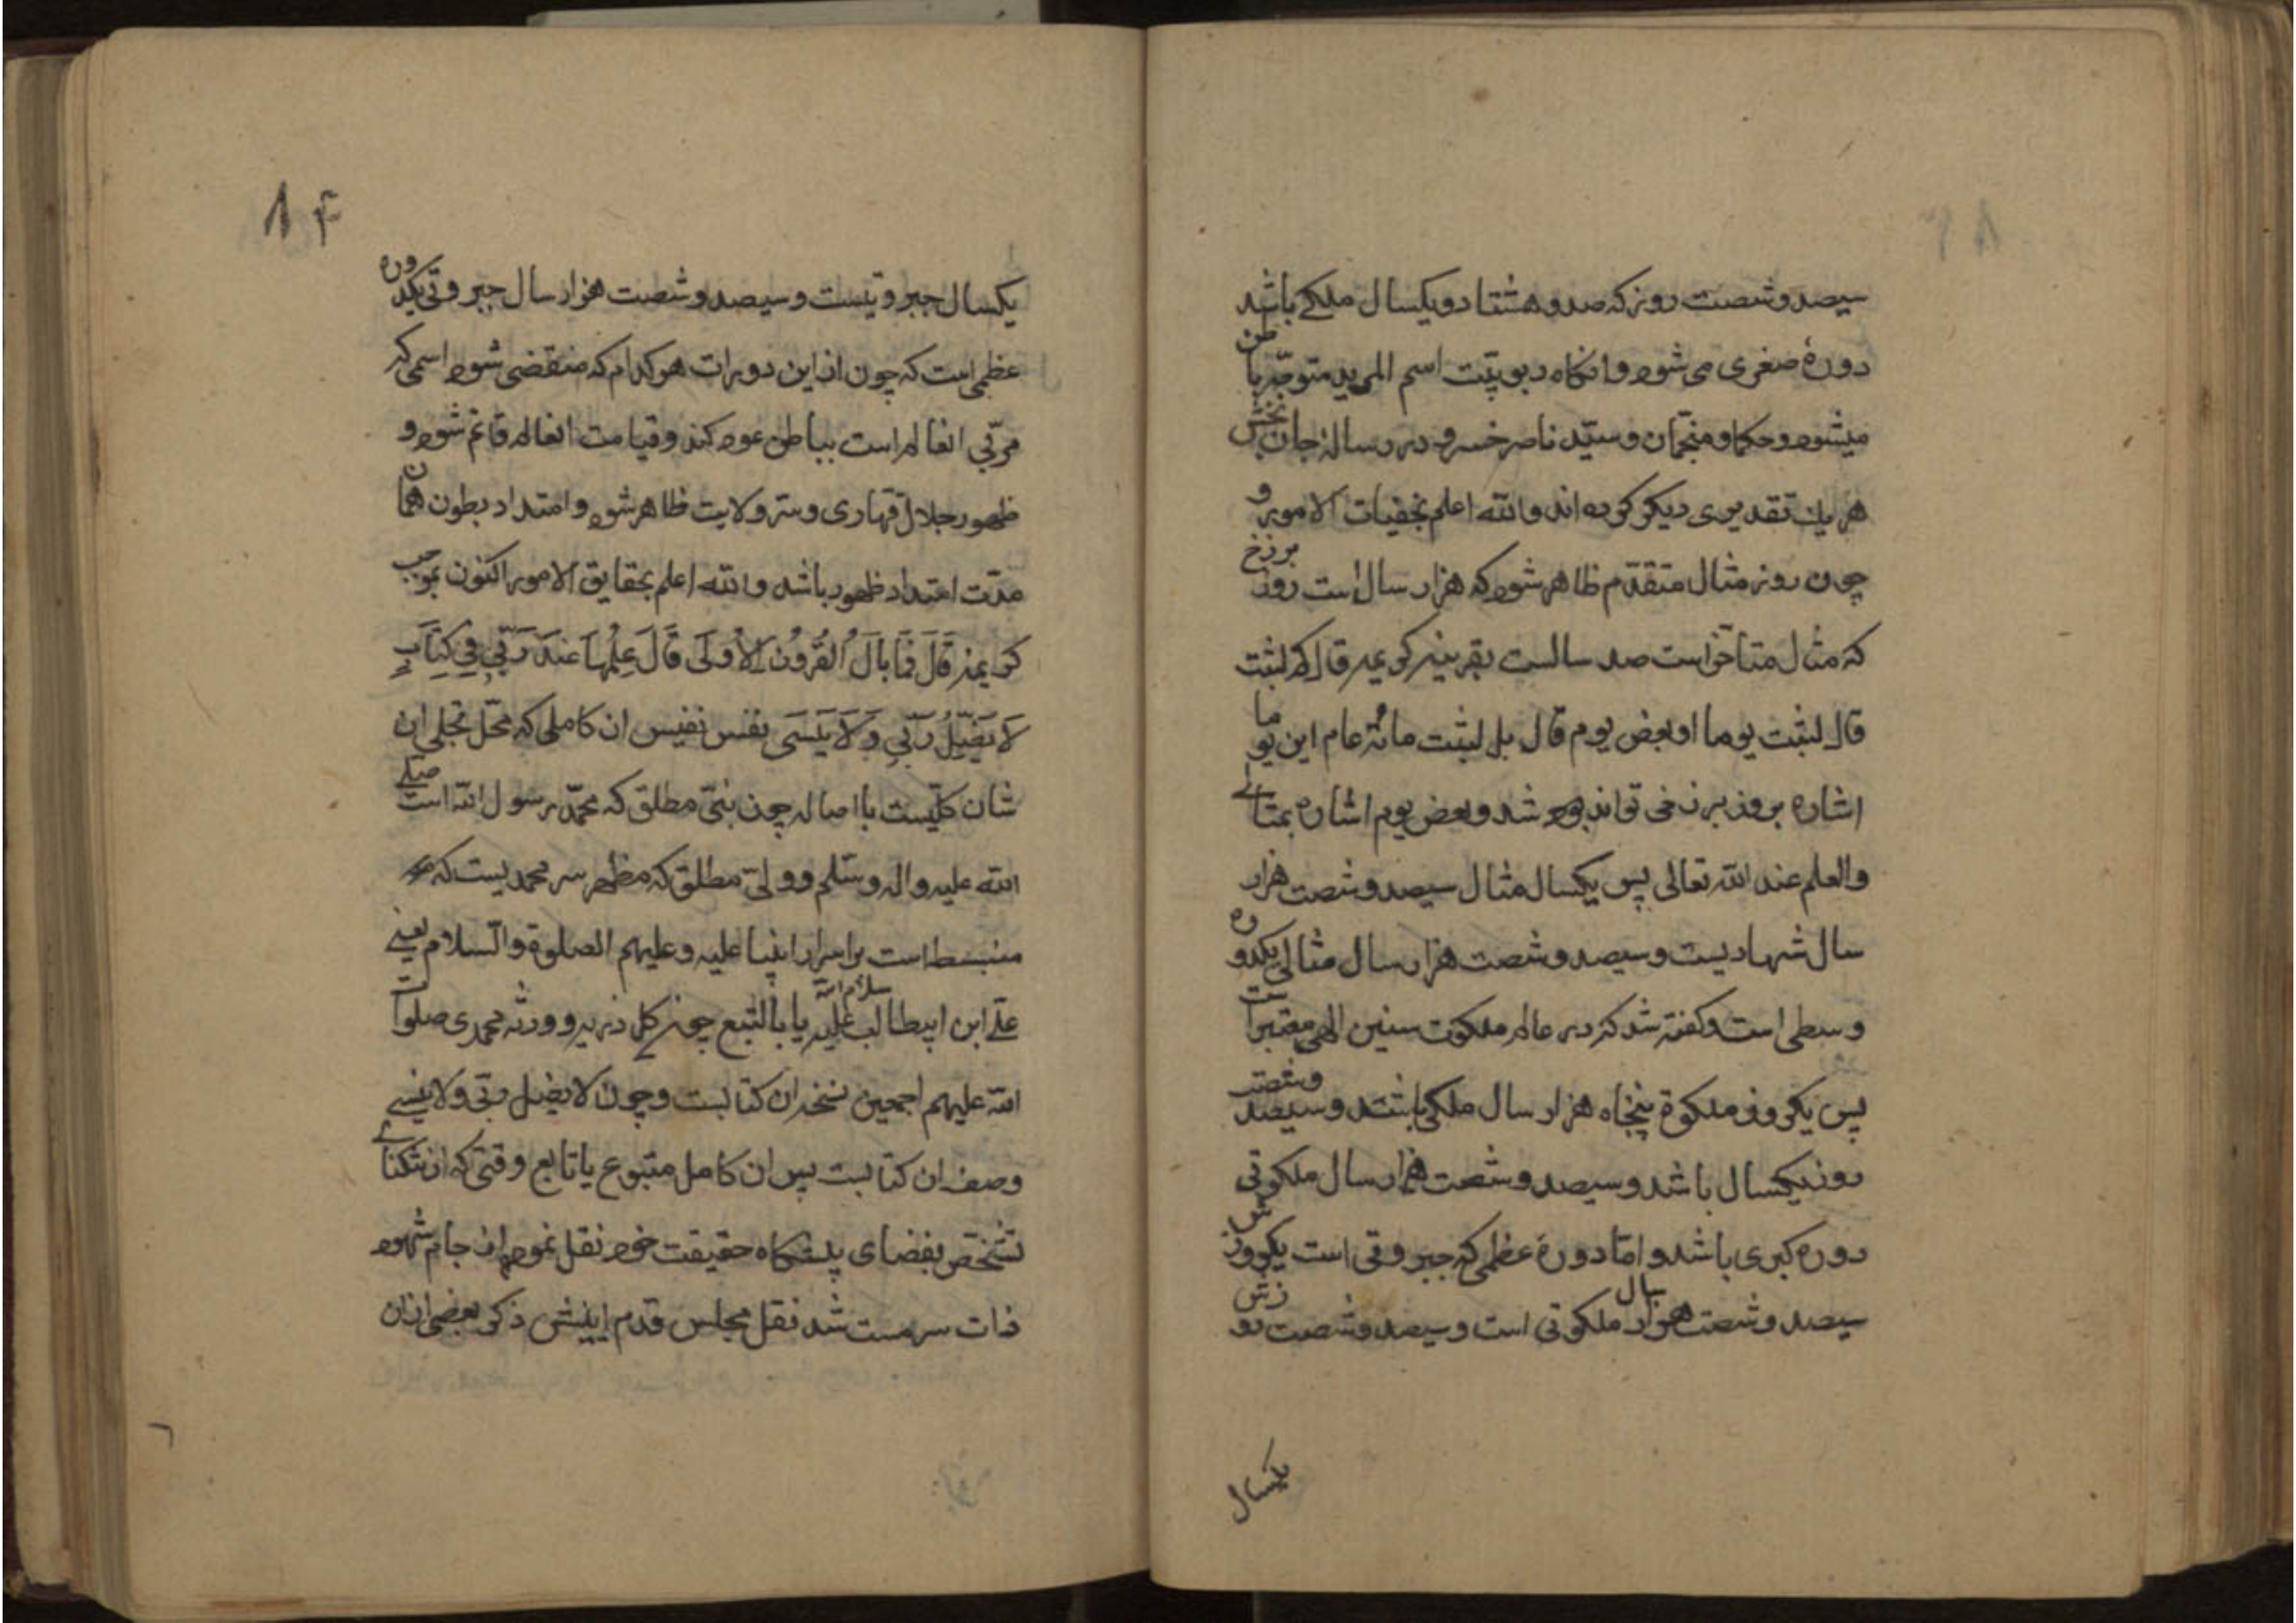 سیصد و شصت روز که صد و هشتاد و یکسال ملکے باشد
دورهٔ صغری می شود و انکاه ربوبیّت اسم المرید متوجّه باطن
میشود و حکما و منجّمان و سیّد ناصر خسرو در رسالهٔ جان بخش
هر یك تقدیری دیکر کرده اند والله اعلم بخفیات الامور و
چون روز مثال متقدّم ظاهر شود که هزار سال است روز برزخ
که مثال متاخّر است صد سالست بقرینه کریمه قال کم لبثت
قال لبثت یوما او بعض یوم قال بل لبثت مائة عام این یوما
اشاره بروز برزخی تواند بود شد و بعض یوم اشاره بمثالے
والعلم عند الله تعالی پس یکسال مثال سیصد و شصت هزار
سال شهادیست و سیصد و شصت هزار سال مثالی یکدوره
وسطی است و کفته شد که در عالم ملکوت سنین الهی معتبر است
پس یکروز ملکوة پنجاه هزار سال ملکی باشند و سیصد و شصت
روز یکسال باشد و سیصد و شصت هزار سال ملکوتی
دوره کبری باشد و امّا دورهٔ عظمی که جبروتی است یکروزش
سیصد و شصت هزار سال ملکوتی است و سیصد و شصت روزش
یکسال
۱۴
یکسال جبروتیست و سیصد و شصت هزار سال جبروتی یکدوره
عظمی است که چون از این دورات هر کدام که منقضی شود اسمی که
مربّی انعالم است بباطن عود کند و قیامت انعالم قائم شود و
ظهور جلال قهاری و سرّ ولایت ظاهر شود و امتداد بطون همان
مدّت امتداد ظهور باشد والله اعلم بحقایق الامور اکنون بموجب
کریمه قَالَ فَمَا بَالُ الْقُرُونِ الْأُولَی قَالَ عِلْمُهَا عِنْدَ رَبِّي فِي كِتَابٍ
لَا یَضِلُّ رَبِّي وَلَا یَنْسَی نفس نفیس ان کاملی که محلّ تجلی ان
شان کلّیست با اصاله چون نبیّ مطلق که محمّد رسول الله است صلی
الله علیه واله وسلّم و ولیّ مطلق که مظهر سر محمدیست که
منبسط است بر اسرار انبیا علیه وعلیهم الصلوة والسّلام یعنے
علے ابن ابیطالب سلام الله علیه یا بالتبع چون کل ذریه و ورثه محمدی صلوات
الله علیهم اجمعین نسخه ان کتابست و چون لا یضل ربّی ولا ینسے
وصف ان کتابست پس ان کامل متبوع یا تابع وقتی که از تنکنای
تشخّص بفضای پیشکاه حقیقت خود نقل نمود و از جام شهود
ذات سرمست شد نقل مجلس قدم ایینش ذکر بعضی ازان